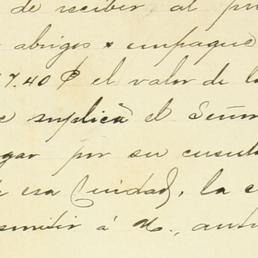 de recibir al pr
abrigos x empaque
7.40 ₱ el valor de l
e suplica el Señor
gar por su cuen
esa Ciudad, la c
smitir á M., ant